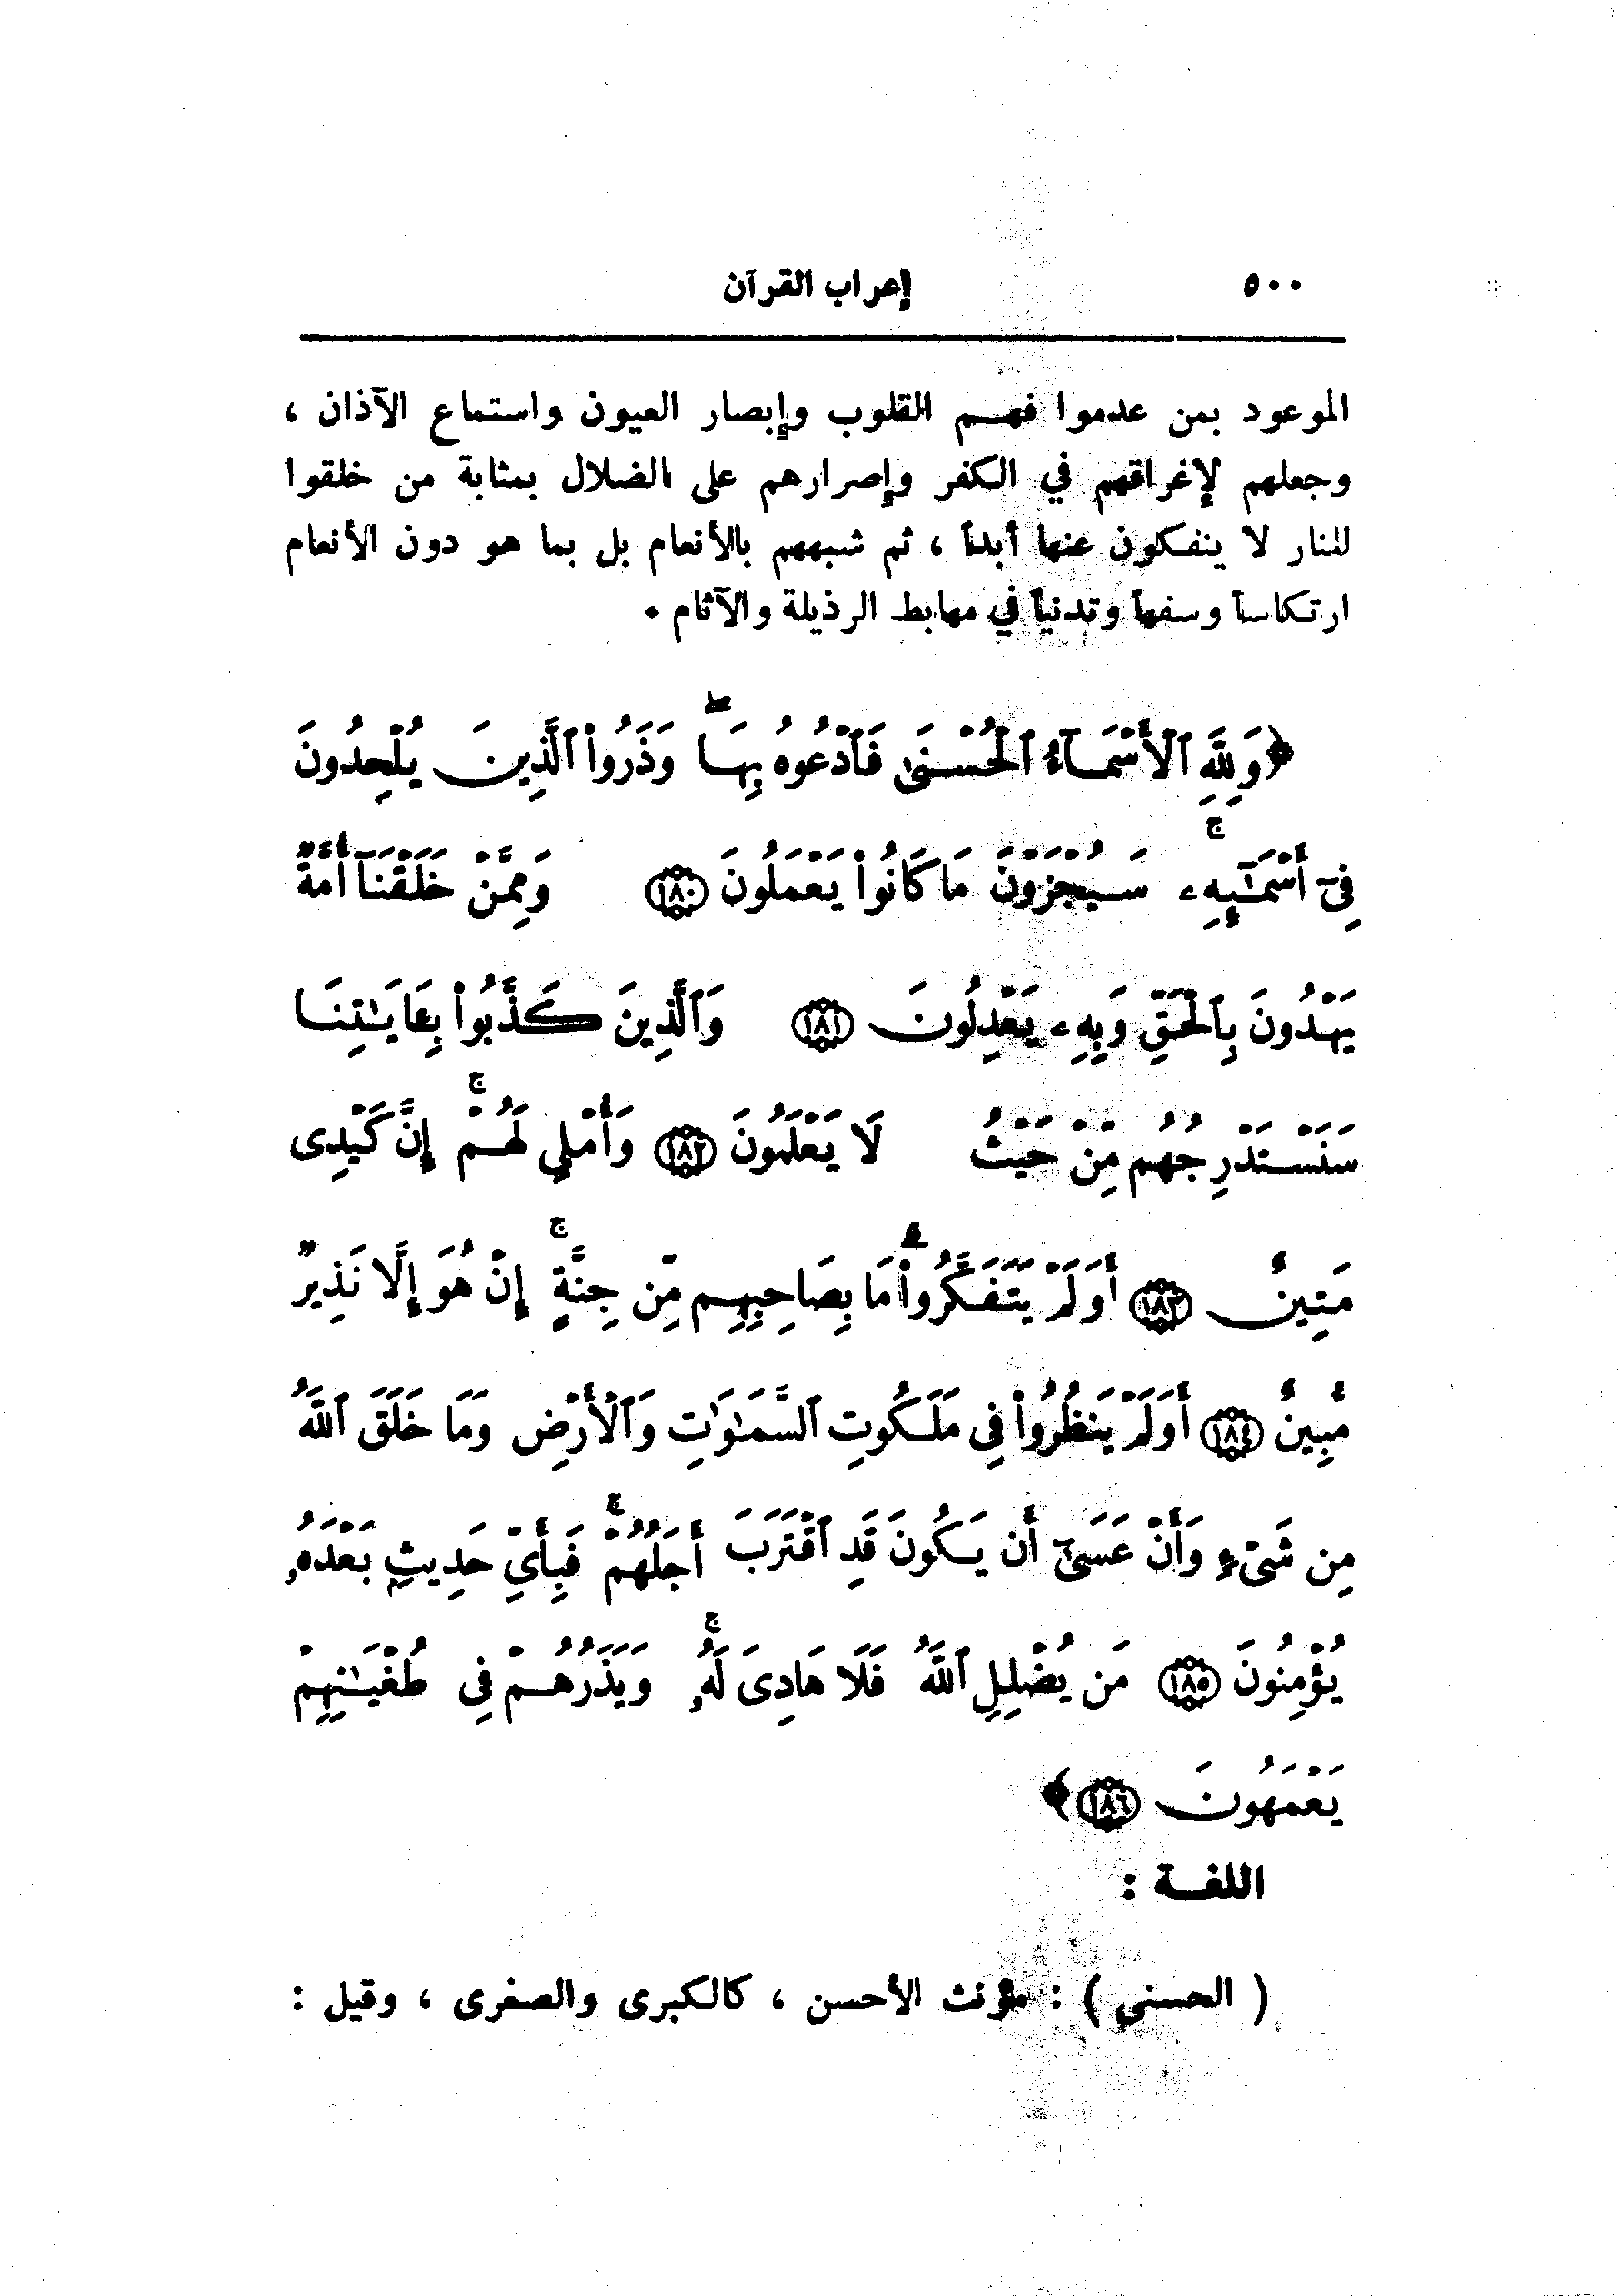 ٥٠٠ إعراب القرآن
الموعود بمن عدموا فهم القلوب وإبصار العيون واستماع الآذان ،
وجعلهم لإغراقهم في الكفر وإصرارهم على الضلال بمثابة من خلقوا
للنار لا ينفكون عنها أبداً ، ثم شبههم بالأنعام بل بما هو دون الأنعام
ارتكاساً وسفهاً وتدنياً في مهابط الرذيلة والآثام .
﴿وَلِلَّهِ ٱلْأَسْمَآءُ ٱلْحُسْنَىٰ فَٱدْعُوهُ بِهَا ۖ وَذَرُوا۟ ٱلَّذِينَ يُلْحِدُونَ
فِىٓ أَسْمَـٰٓئِهِۦ ۚ سَيُجْزَوْنَ مَا كَانُوا۟ يَعْمَلُونَ ١٨٠ وَمِمَّنْ خَلَقْنَآ أُمَّةٌ
يَهْدُونَ بِٱلْحَقِّ وَبِهِۦ يَعْدِلُونَ ١٨١ وَٱلَّذِينَ كَذَّبُوا۟ بِـَٔايَـٰتِنَا
سَنَسْتَدْرِجُهُم مِّنْ حَيْثُ لَا يَعْلَمُونَ ١٨٢ وَأُمْلِى لَهُمْ ۚ إِنَّ كَيْدِى
مَتِينٌ ١٨٣ أَوَلَمْ يَتَفَكَّرُوا۟ ۗ مَا بِصَاحِبِهِم مِّن جِنَّةٍ ۚ إِنْ هُوَ إِلَّا نَذِيرٌ
مُّبِينٌ ١٨٤ أَوَلَمْ يَنظُرُوا۟ فِى مَلَكُوتِ ٱلسَّمَـٰوَٰتِ وَٱلْأَرْضِ وَمَا خَلَقَ ٱللَّهُ
مِن شَىْءٍ وَأَنْ عَسَىٰٓ أَن يَكُونَ قَدِ ٱقْتَرَبَ أَجَلُهُمْ ۚ فَبِأَىِّ حَدِيثٍۭ بَعْدَهُۥ
يُؤْمِنُونَ ١٨٥ مَن يُضْلِلِ ٱللَّهُ فَلَا هَادِىَ لَهُۥ ۚ وَيَذَرُهُمْ فِى طُغْيَـٰنِهِمْ
يَعْمَهُونَ ١٨٦﴾
اللغـة :
( الحسنى ) : مؤنث الأحسن ، كالكبرى والصغرى ، وقيل :